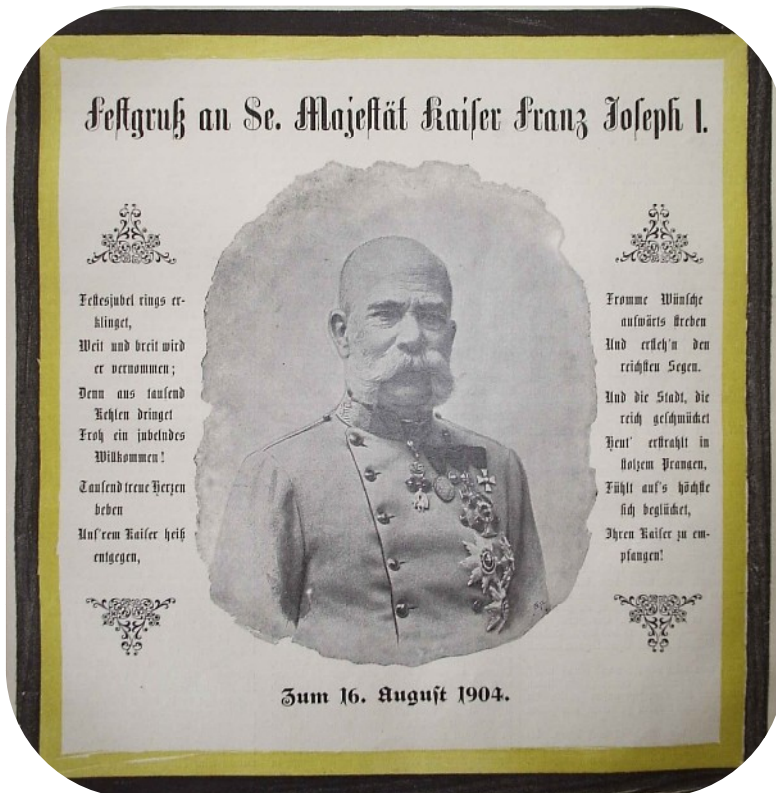 Festgruß an Se. Majestät Kaiser Franz Joseph I.
Festesjubel rings er-
klinget,
Weit und breit wird
er vernommen;
Denn aus tausend
Kehlen dringet
Froh ein jubelndes
Willkommen!
Tausend treue Herzen
beben
Uns'rem Kaiser heiß
entgegen,
Fromme Wünsche
aufwärts streben
Und erfleh'n den
reichsten Segen.
Und die Stadt, die
reich geschmücket
Heut' erstrahlt in
stolzem Prangen,
Fühlt auf's höchste
sich beglücket,
Ihren Kaiser zu em-
pfangen!
Zum 16. August 1904.